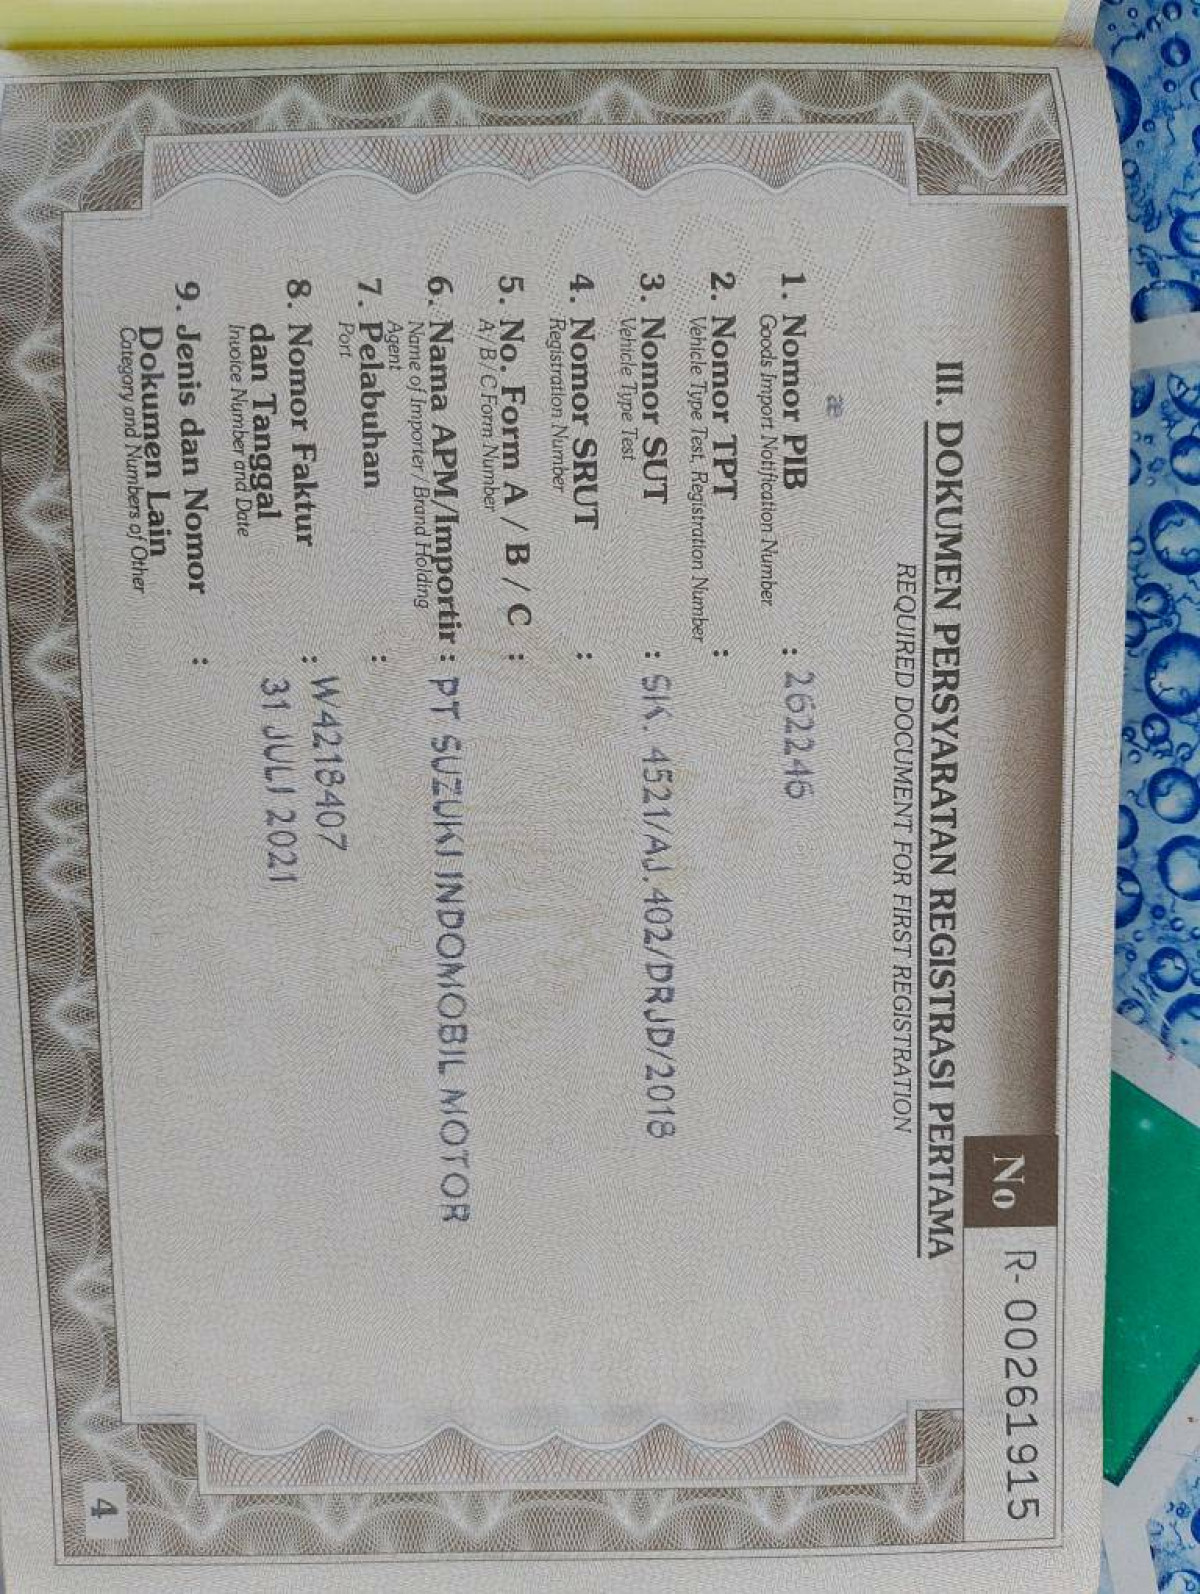 No R-00261915
III. DOKUMEN PERSYARATAN REGISTRASI PERTAMA
REQUIRED DOCUMENT FOR FIRST REGISTRATION
1. Nomor PIB : 262246
Goods Import Notification Number
2. Nomor TPT :
Vehicle Type Test, Registration Number
3. Nomor SUT : SK. 4521/AJ.402/DRJD/2018
Vehicle Type Test
4. Nomor SRUT :
Registration Number
5. No. Form A / B / C :
A/B/C Form Number
6. Nama APM/Importir : PT SUZUKI INDOMOBIL MOTOR
Name of Importer/Brand Holding
Agent
7. Pelabuhan :
Port
8. Nomor Faktur : W4218407
dan Tanggal 31 JULI 2021
Invoice Number and Date
9. Jenis dan Nomor :
Dokumen Lain
Category and Numbers of Other
4